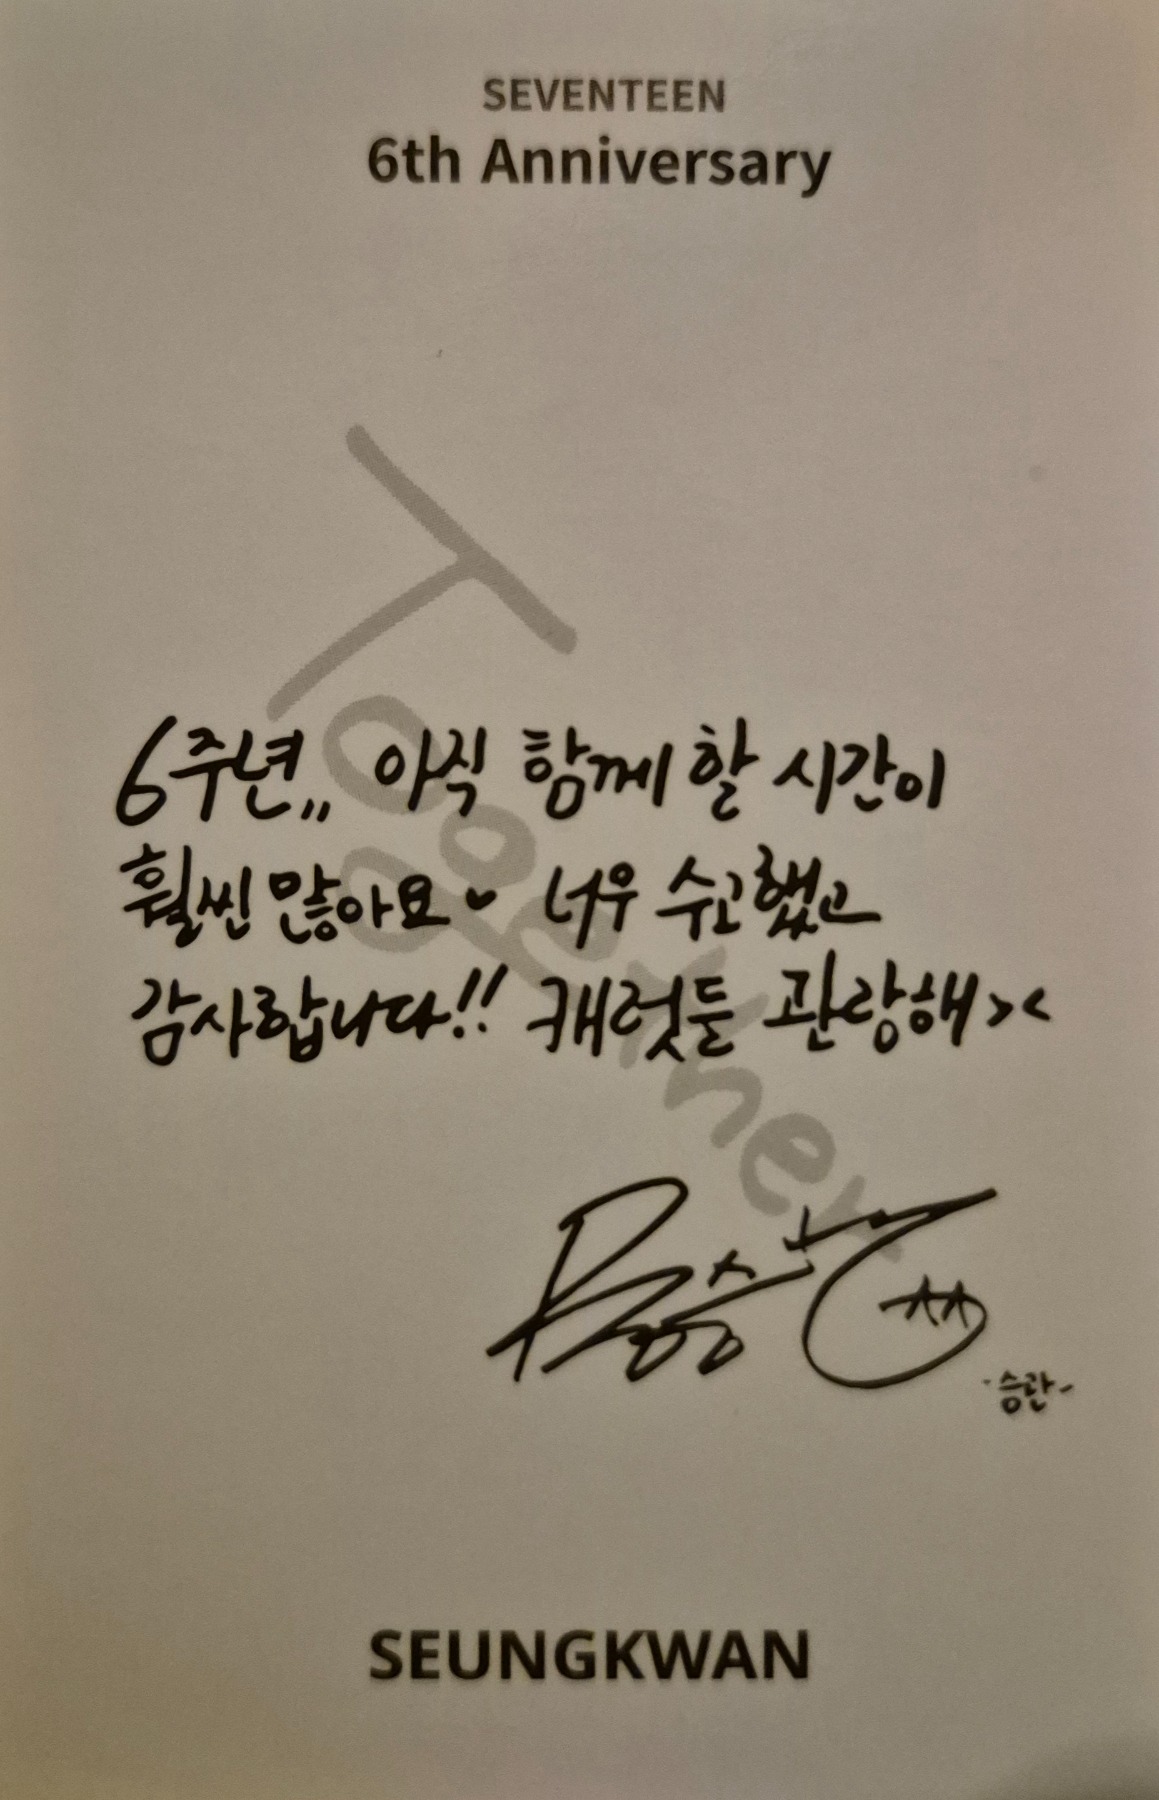 SEVENTEEN
6th Anniversary
Together
6주년,, 아직 함께 할 시간이
훨씬 많아요♥ 너우 수고했고
감사합니다!! 캐럿들 관랑해><
-승관-
SEUNGKWAN